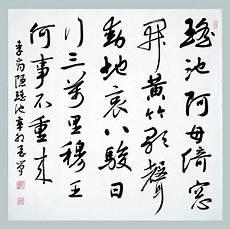 瑤池阿母綺窓
開黄竹歌聲
動地哀八駿日
行三萬里穆王
何事不重来
李商隱瑤池辛卯